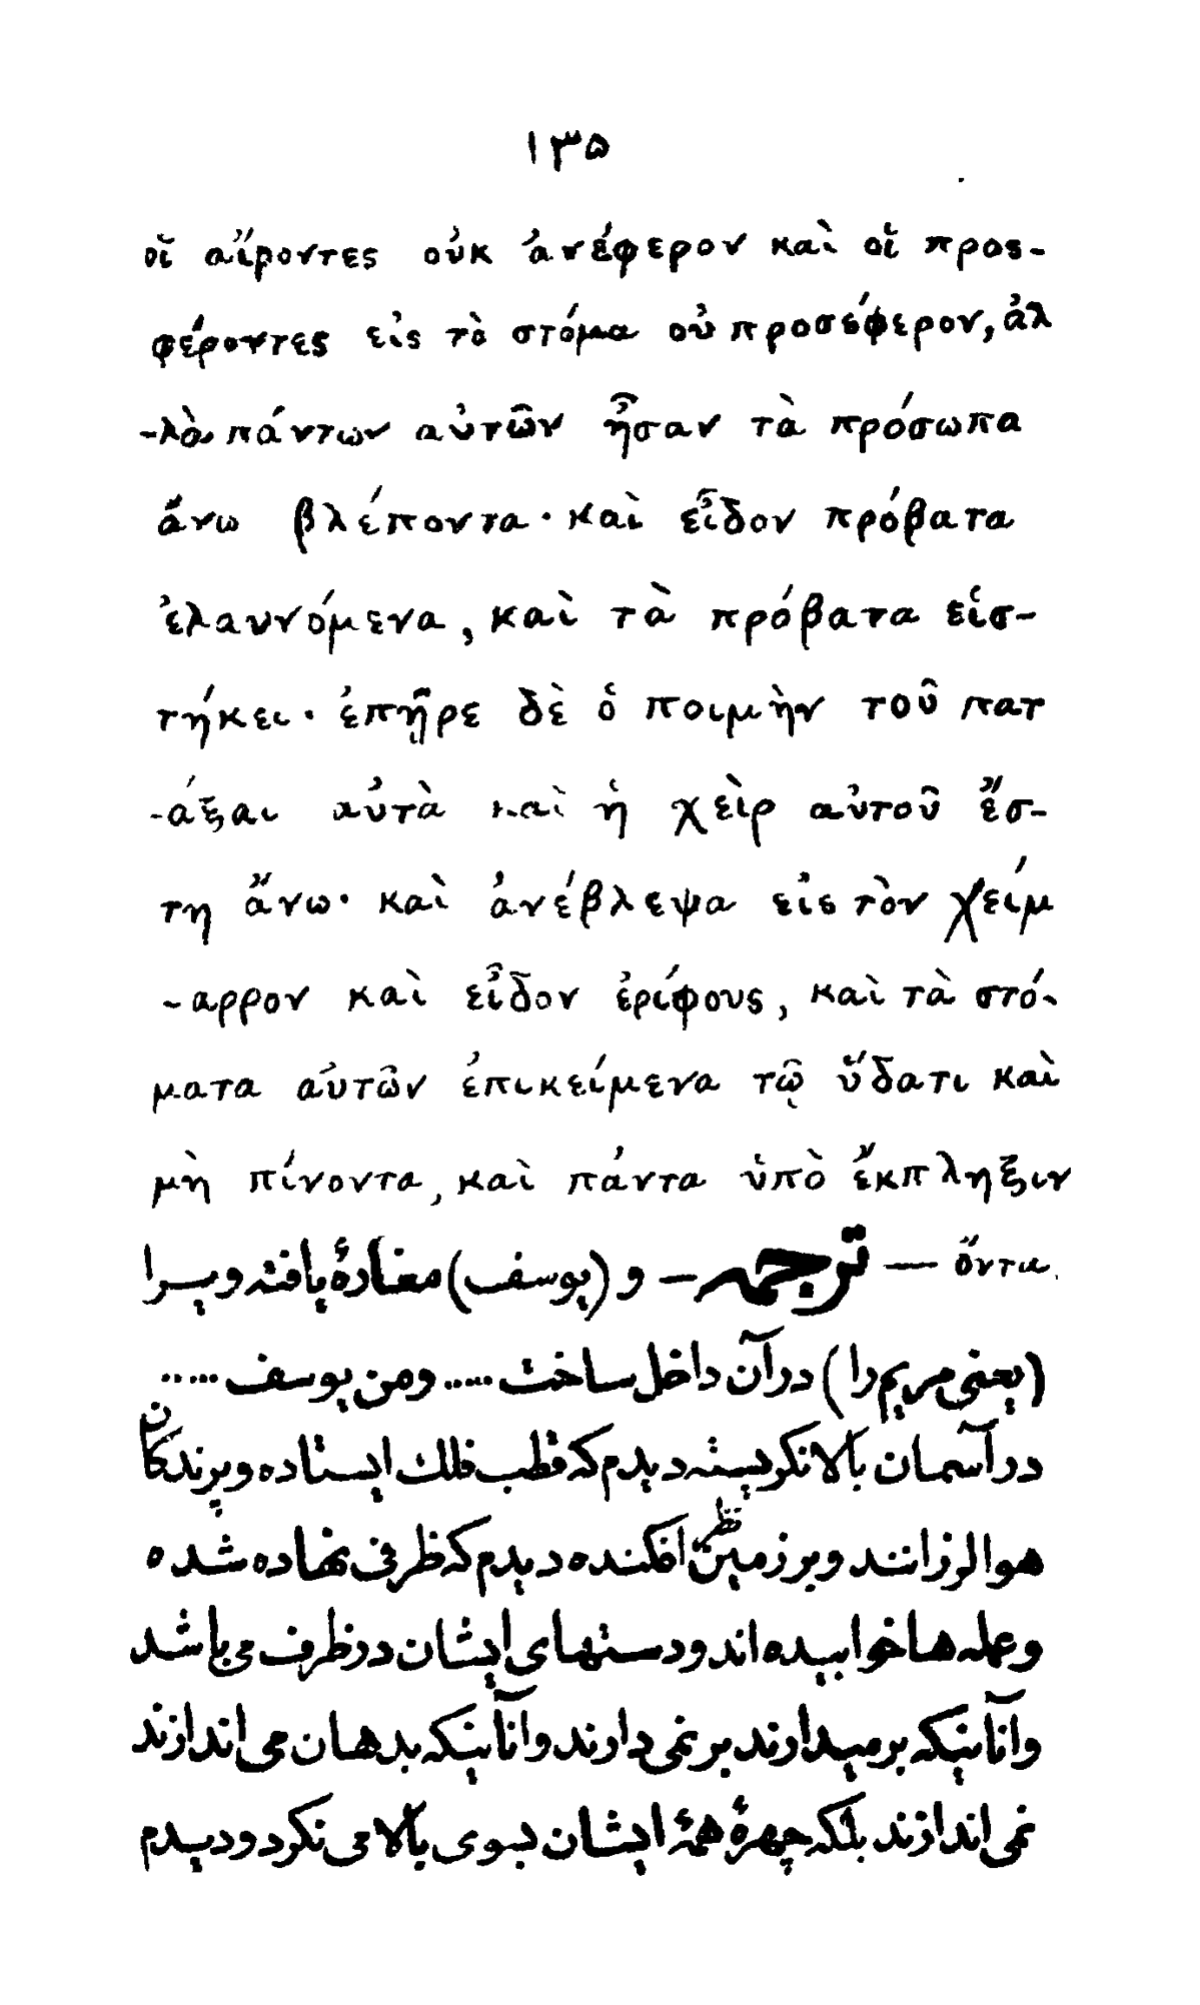 ۱۳۵
οἵ αἵροντες οὐκ ἀνέφερον καὶ οἵ προς-
φέροντες εἰς τὸ στόμα οὐ προσέφερον, ἀλ
-λὰ πάντων αὐτῶν ἦσαν τὰ πρόσωπα
ἄνω βλέποντα· καὶ εἶδον πρόβατα
ἐλαυνόμενα, καὶ τὰ πρόβατα εἱσ-
τήκει· ἐπῇρε δὲ ὁ ποιμὴν τοῦ πατ
-άξαι αὐτὰ καὶ ἡ χεὶρ αὐτοῦ ἔσ-
τη ἄνω· καὶ ἀνέβλεψα εἰς τὸν χείμ
-αρρον καὶ εἶδον ἐρίφους, καὶ τὰ στό-
ματα αὐτῶν ἐπικείμενα τῷ ὕδατι καὶ
μὴ πίνοντα, καὶ πάντα ὑπὸ ἔκπληξιν
ὄντα. — ترجمه — و (یوسف) مغارهٔ یافته ویرا
(یعنی مریم را) در آن داخل ساخت ..... و من یوسف .....
در آسمان بالا نکریسته دیدم که قطب فلك ایستاده و پرندکان
هوا لرزانند و بر زمین نظر افکنده دیدم که ظرفی نهاده شده
و عمله ها خوابیده اند و دستهای ایشان در ظرف می باشد
و آنانیکه برمیدارند بر نمی دارند و آنانیکه بدهان می اندازند
نمی اندازند بلکه چهرهٔ همهٔ ایشان بسوی بالا می نکرد و دیدم